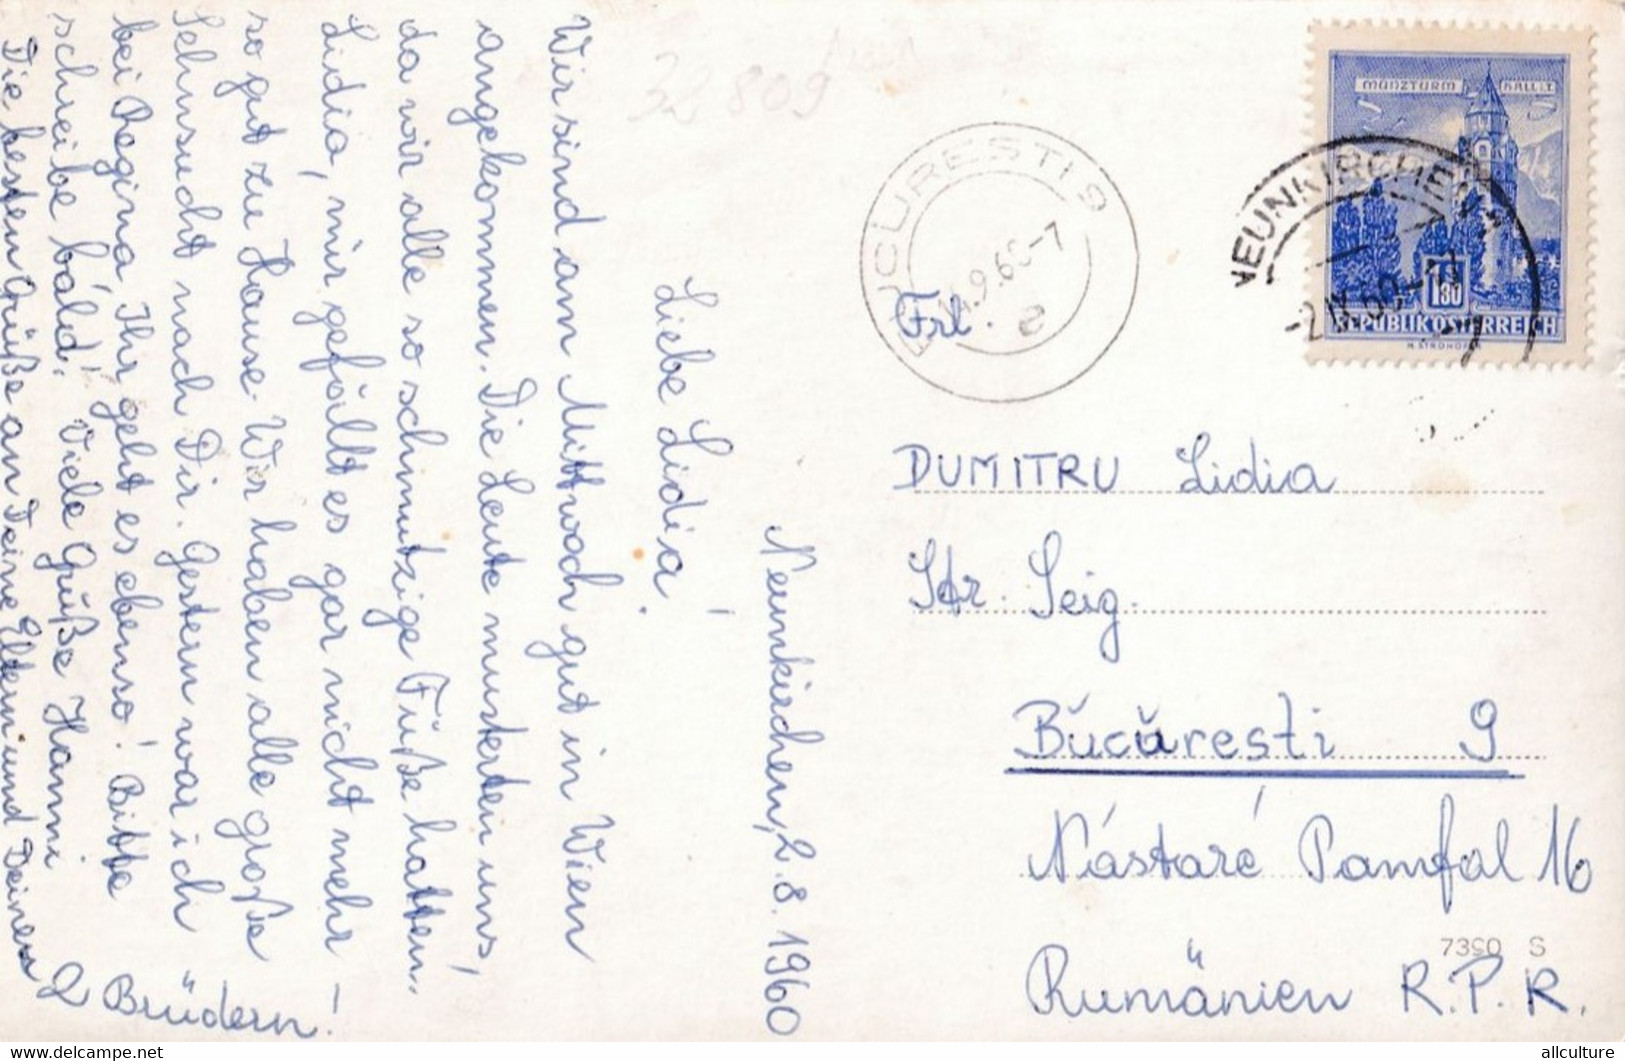 Neunkirchen, 2.8.1960
Liebe Lidia!
Wir sind am Mittwoch gut in Wien
angekommen. Die Leute musterten uns,
da wir alle so schmutzige Füße hatten.
Lidia, mir gefällt es gar nicht mehr
so gut zu Hause. Wir haben alle große
Sehnsucht nach Dir. Gestern war ich
bei Regina. Ihr geht es ebenso! Bitte
schreibe bald! Viele Grüße Hanni
Die besten Grüße an Deine Eltern und Deinen
2 Brüdern!
32809
BUCURESTI 9
14.9.60-7
e
MÜNZTURM HALL I.T.
1.80
REPUBLIK ÖSTERREICH
NEUNKIRCHEN
-2.IX.60-17
Frl.
DUMITRU Lidia
Str. Seig.
Bucuresti 9
Năstaré Pamfal 16
Rumänien R.P.R.
7390 S
delcampe.net
allculture